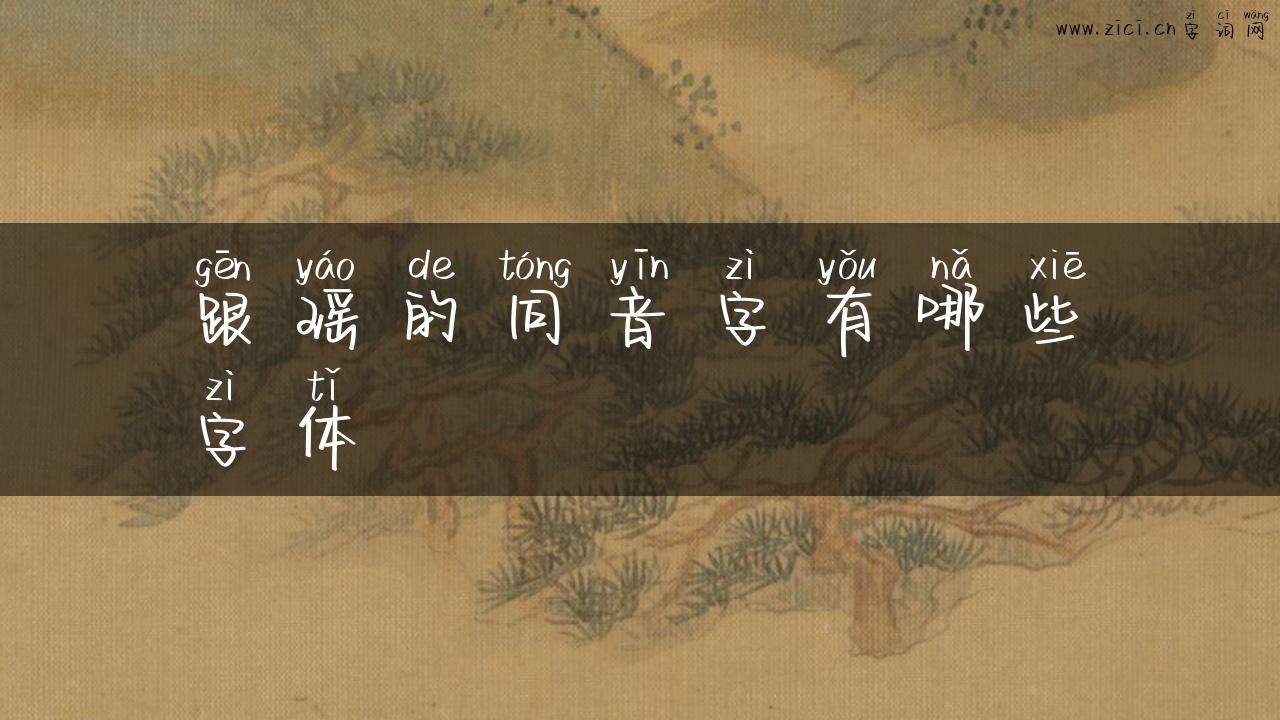 zì cí wǎng
www.zici.cn 字词网
gēn yáo de tóng yīn zì yǒu nǎ xiē
跟瑶的同音字有哪些
zì tǐ
字体